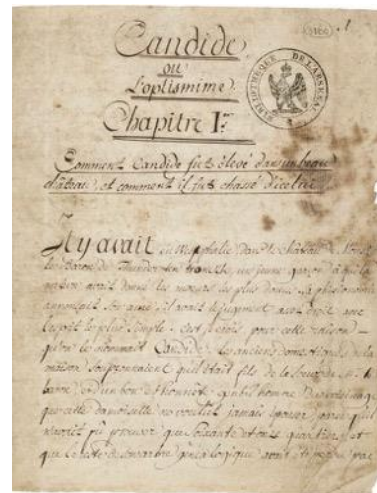 3160
1
Candide
ou
L'optismime.
Chapitre Ir.
BIBLIOTHEQUE DE L'ARSENAL
Comment Candide fut élevé dans un beau
château, et comment il fut chassé d'icelui
Il y avait en Westphalie dans le château de
le Baron de Thunder-ten-tronckh, un jeune garçon à qui la
avait donné les mœurs les plus douces. Sa phisionomie
annonçait son ame. il avait le jugement assez droit avec
l'esprit le plus simple. c'est je crois pour cette raison
qu'on le nommait Candide. les anciens domestiques de la
maison soupçonnaient qu'il était fils de la sœur de
baron, et d'un bon et honnête gentil homme
que cette damoiselle ne voulut jamais épouser parce qu'il
n'avait pû prouver que soixante et onze quartiers, et
que le reste de son arbre généalogique avait été par